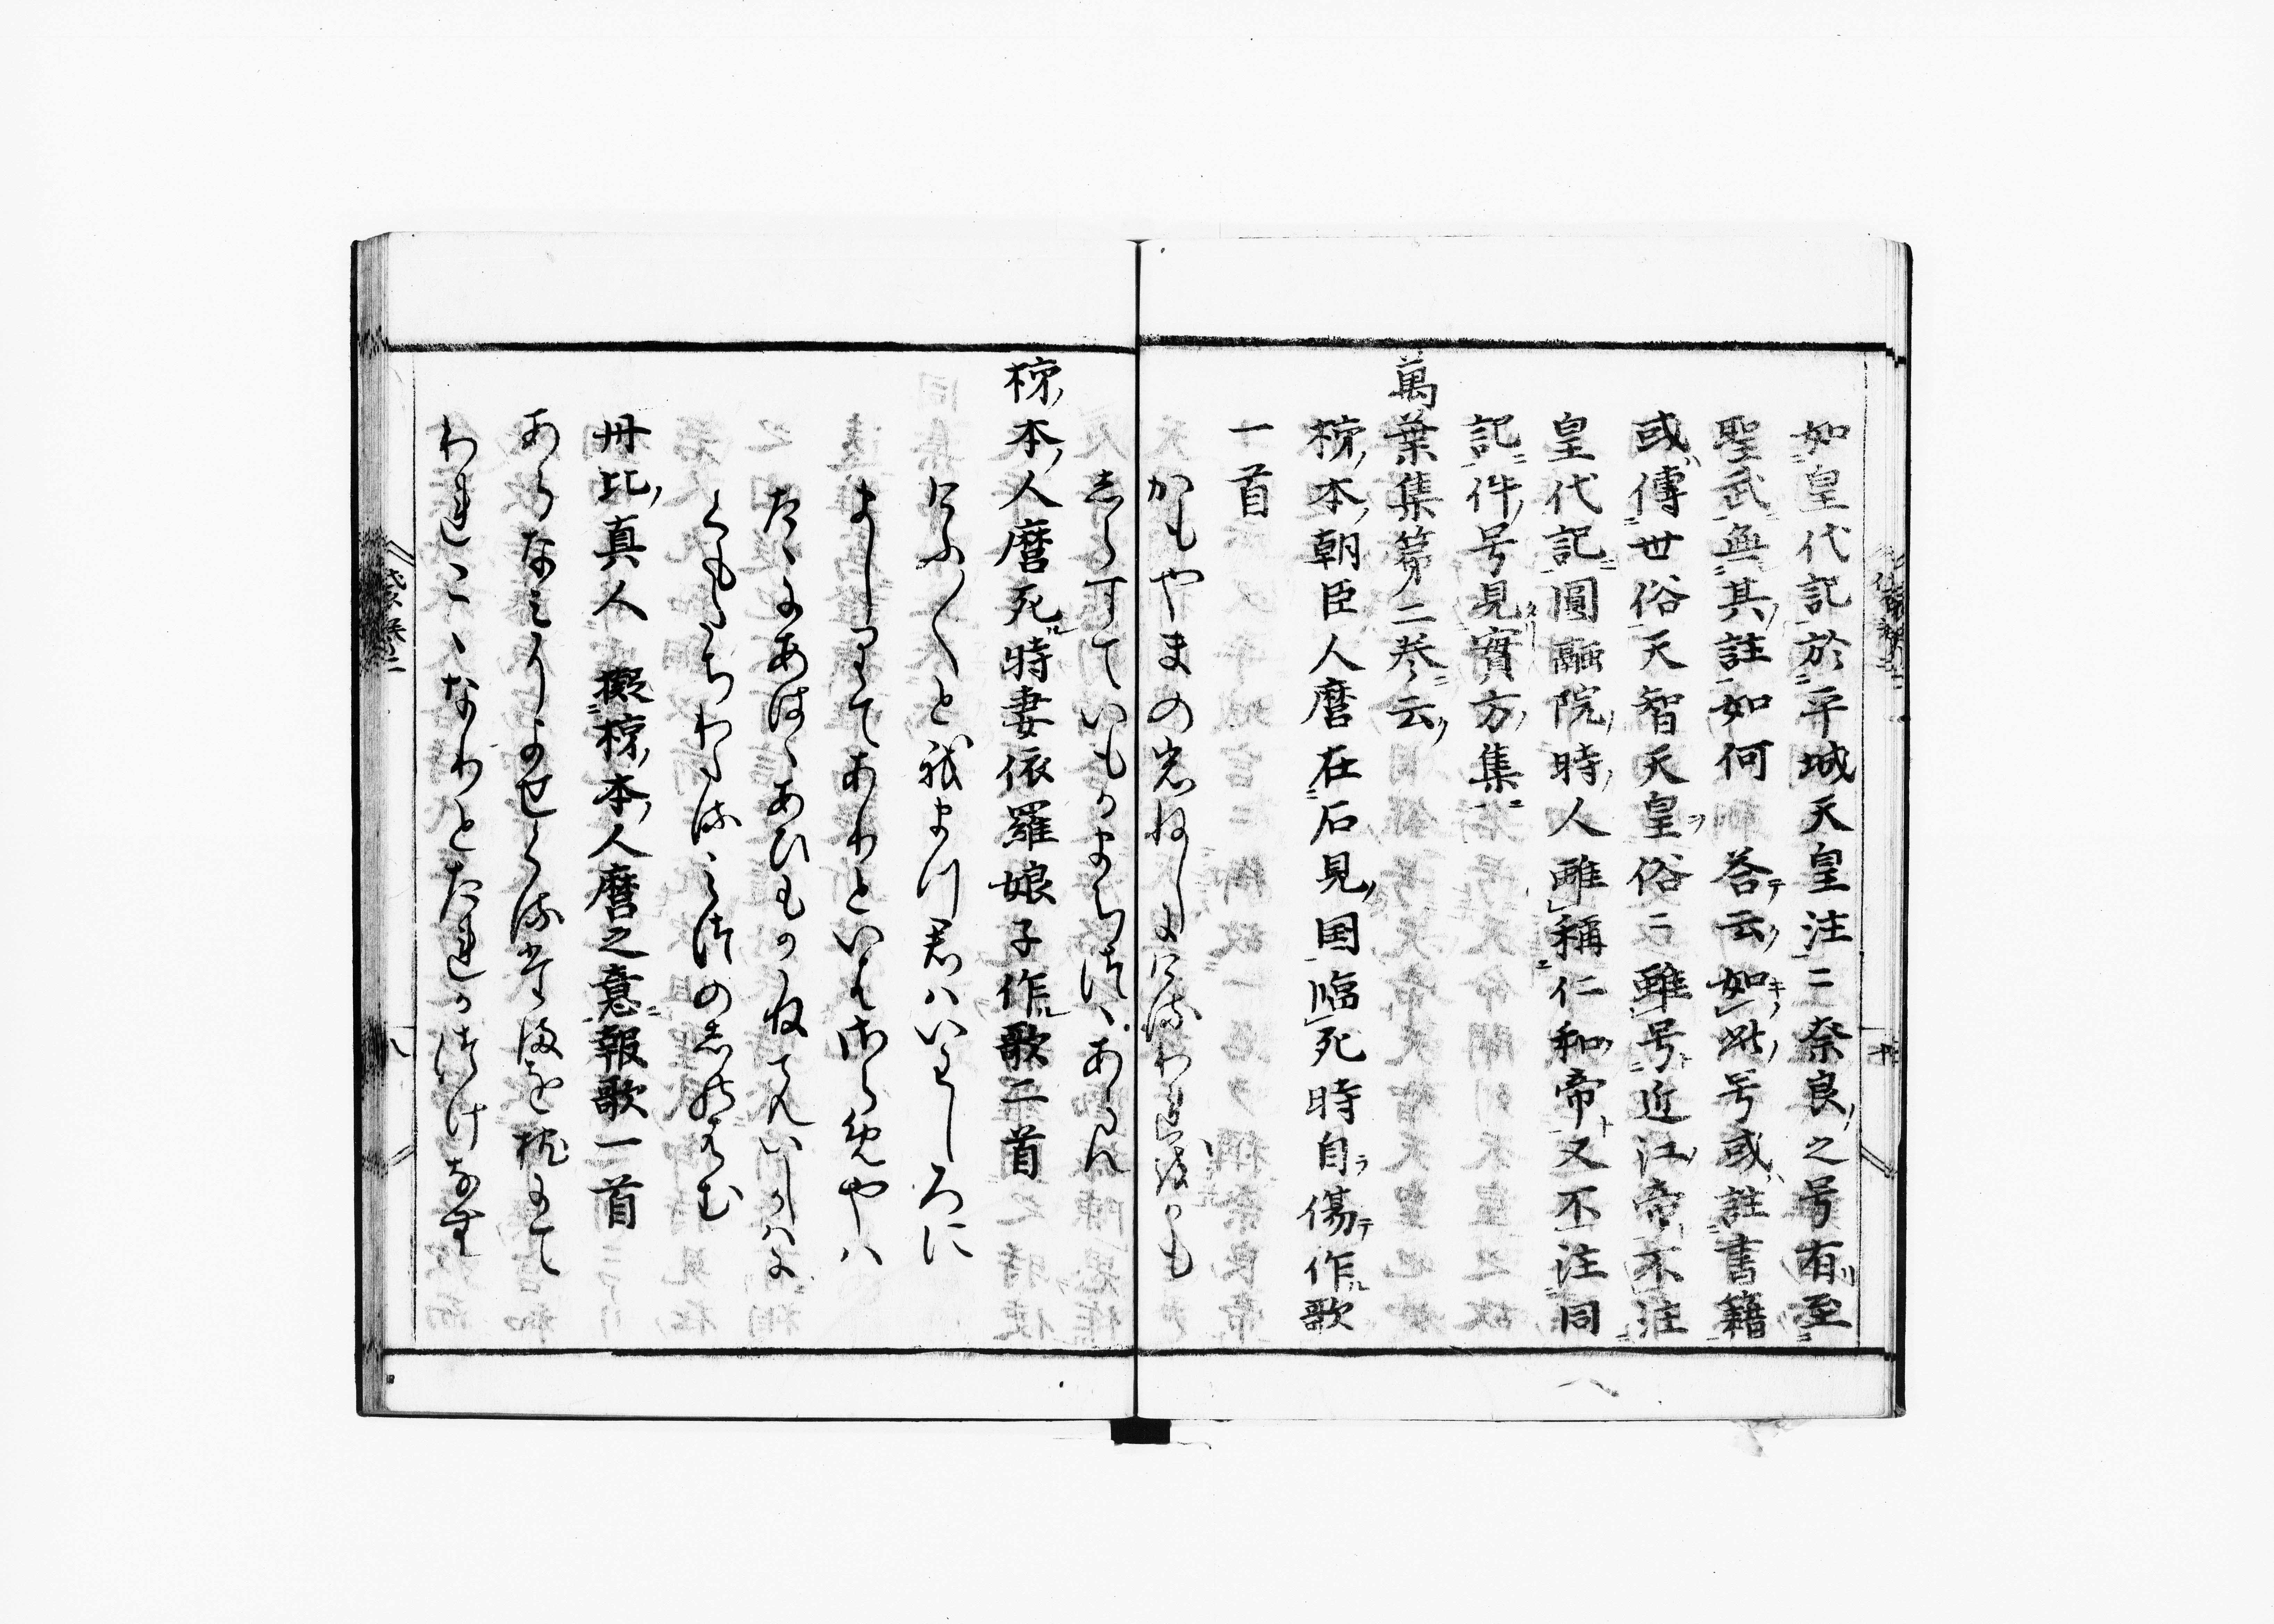 如皇代記於平城天皇注ニ奈良ノ之号有リ至
聖武無其ノ註如何 答テ云ク如キノ此ノ号或ハ註書籍
或ハ傳世俗天智天皇ヲ俗ニ雖号近江ノ帝不注
皇代記圓融院ノ時ノ人雖稱仁和ノ帝ト又不注同
記件ノ号見實方ノ集
萬葉集第ノ二巻云ク
柹ノ本ノ朝臣人麿在石見ノ国臨死時自ラ傷テ作ル歌
一首
かもやまの岩ねしまけるわれをかも
しらすていもかまちつゝあらん
柹ノ本ノ人麿死ル時妻依羅娘子作ル歌二首
けふ〳〵と我まつ君はいはしろに
ましりてありといはすやは
たゝにあはゝあひもかねてんいしかはに
くもたちわたれみつゝしのはむ
丹比ノ真人 擬柹ノ本ノ人麿之意報歌一首
あらなみによせくる
玉を枕にて
われこゝなりとたれかつけなむ